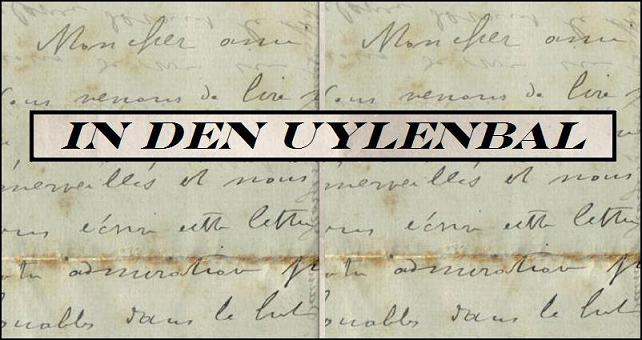 Mon cher ami Mon cher ami
vous venons de lire vous venons de lire
IN DEN UYLENBAL
merveilles et nous merveilles et nous
vous écrire cette lettre vous écrire cette lettre
admiration admiration
dans le but dans le but